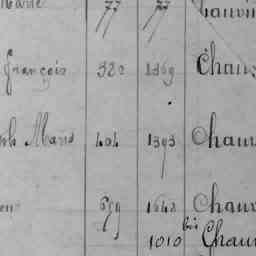 Marie 77 77 Chauvin
François 320 1369 Chauv
Marie 404 1393 Chauv
679 1642 Chauv
1010 bis Chauv